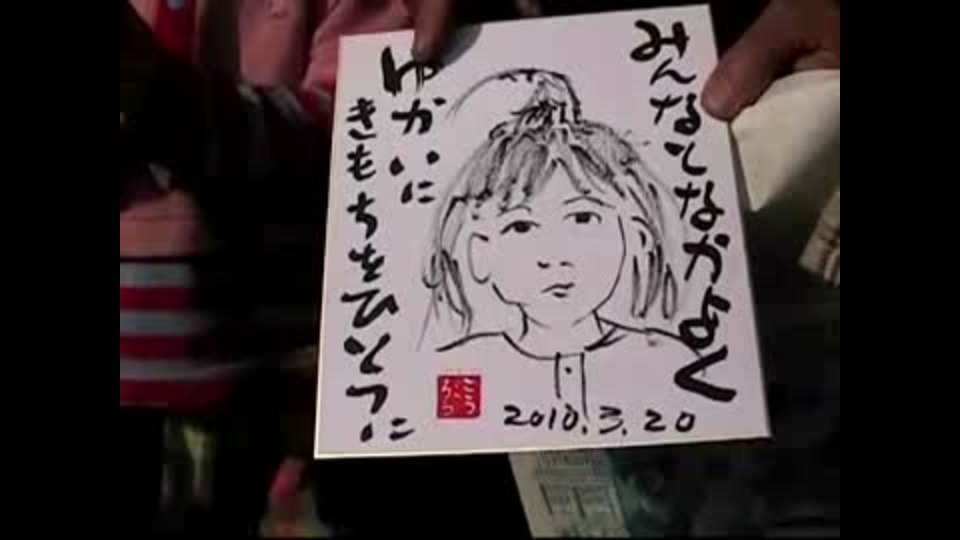 みんなとなかよく
ゆかいに
きもちをひとつに
2010.3.20